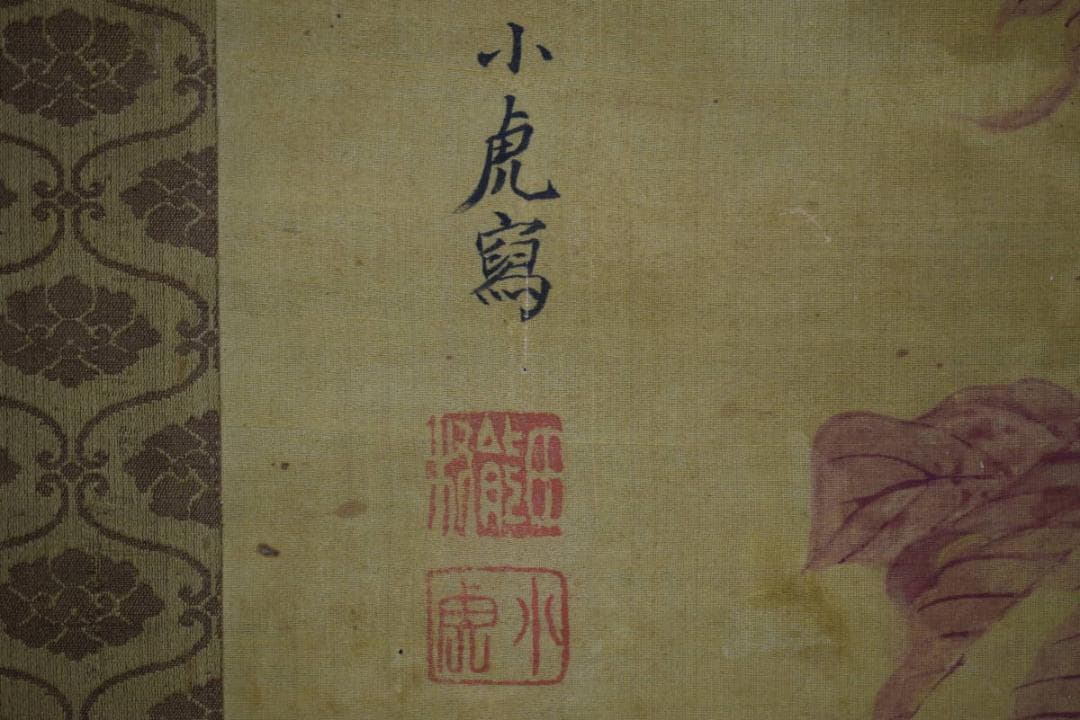 小虎寫
小虎